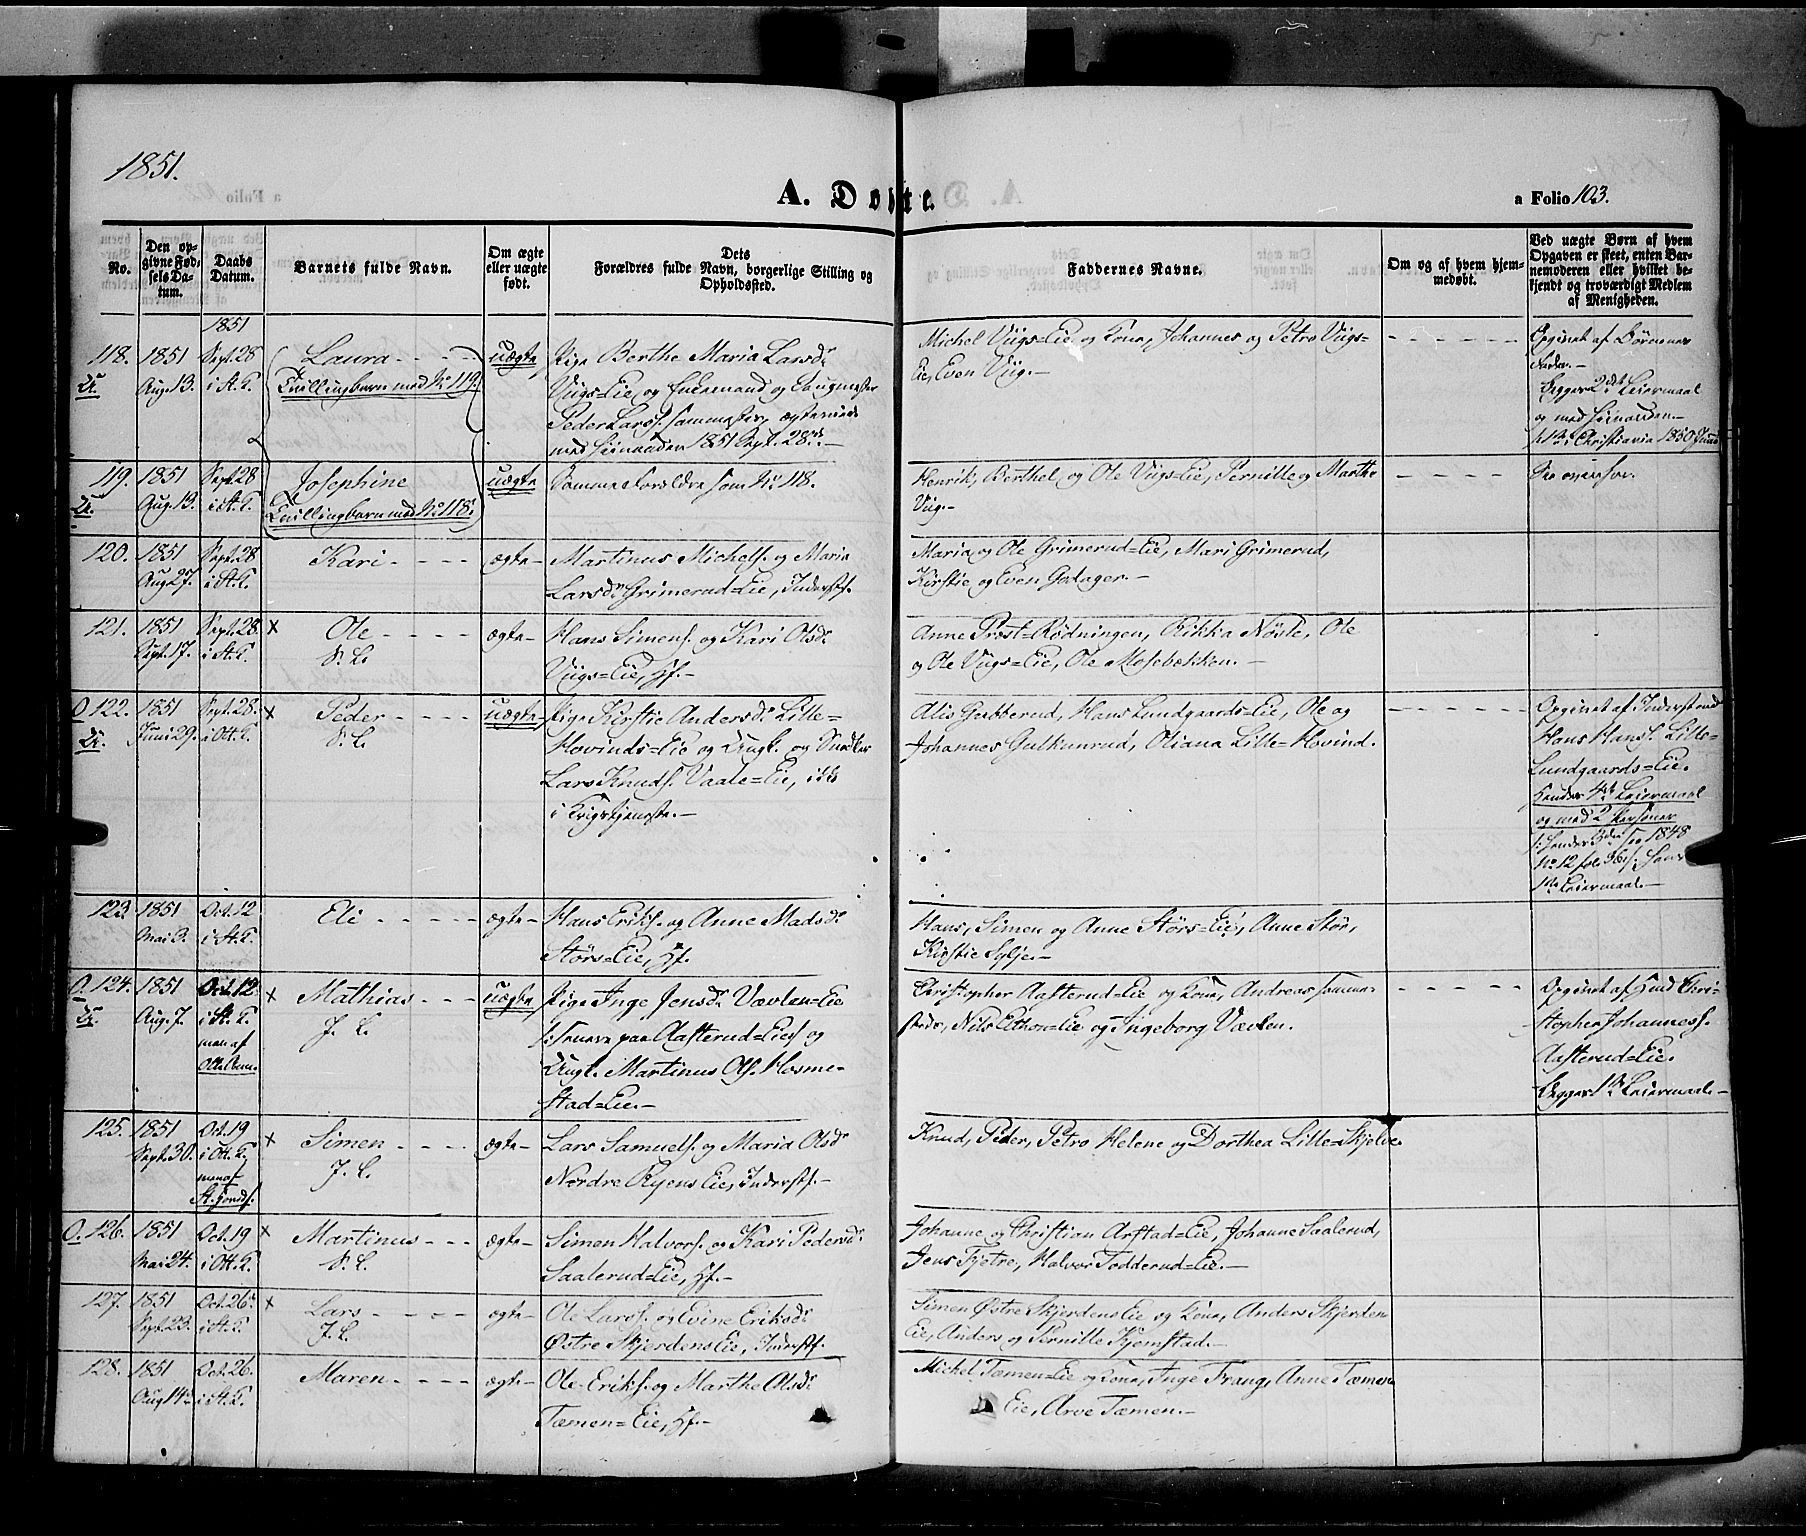 1851.
A. Døbte.
a Folio 103.
No.
Den op-
givne Fød-
sels Da-
tum.
Daabs
Datum.
Barnets fulde Navn.
Om ægte
eller uægte
født.
Dets
Forældres fulde Navn, borgerlige Stilling og
Opholdssted.
Faddernes Navne.
Om og af hvem hjem-
medøbt.
Ved uægte Børn af hvem
Opgaven er skeet, enten Bar-
nemoderen eller hvilket be-
kjendt og troværdigt Medlem
af Menigheden.
118.
U.
1851
Aug. 13.
1851
Sept. 28
i St. K.
Laura
Tvillingbarn med No 119.
uægte
Pige Berthe Maria Larsdr
Viigs=Eie og Enkemand og
Peder Larss. sammesteds,
1851 Sept. 28de.-
Michel Viigs=Eie og Kone, Johannes og Petro Viigs=
Eie, Even Viig.-
Opgivet af Børnenes
Fader.
Begges 2det Leiermaal
og med hinanden.-
i Christiania 1850
119.
U.
1851
Aug. 13.
Sept. 28
i St. K.
Josephine
Tvillingbarn med No 118.
uægte
Samme Forældre som No 118.
Henrik, Berthel og Ole Viigs=Eie, Pernille og Marthe
Viig.-
See ovenfor.
120.
1851
Aug. 27.
Sept. 28
i St. K.
Kari
ægte
Martinus Michels. og Maria
Larsdr Grimerud=Eie, Inderstf.
Maria og Ole Grimerud=Eie, Mari Grimerud,
Kirstie og Even Godager.-
121.
1851
Sept. 17.
Sept. 28.
i St. K.
x
Ole
S. L.
ægte
Hans Simens. og Kari Olsdr
Viigs=Eie, Hf.-
Anne Prest=Rødningen, Rikka Nøsle, Ole
og Ole Viigs=Eie, Ole Mosebækken.-
O. 122.
U.
1851
Juni 29.
Sept. 28.
i Ott. K.
x
Peder
S. L.
uægte
Pige Kirstie Andersdr Lille=
Hovinds=Eie og Ungk. og Snedker
Lars Knuds. Vaale=Eie, ikke
i Krigstjeneste.-
Alis Gubberud, Hans Lundgaards=Eie, Ole og
Johannes Gulkunrud, Oliana Lille=Hovind.
Opgivet af Inderstmd
Hans Hans. Lille=
Lundgaards=Eie.
Hendes 4de Leiermaal
og med 2 Personer
/: Hendes 3die see 1848
No 12 fol. 36:/. Hans
1ste Leiermaal.-
123.
1851
Mai 3.
Oct. 12
i St. K.
Eli
ægte
Hans Eriks. og Anne Madsdr
Störs=Eie, Hf.
Hans, Simen og Anne Störs=Eie, Anne Stör,
Kirstie Sylje.-
O. 124.
U.
1851
Aug. 7.
Oct. 12
i St. K.
men af
Ottestun.
x
Mathias
J. L.
uægte
Pige Inge Jensdr Vævlen=Eie
/: paa Aasterud=Eie:/ og
Ungk. Martinus Ols. Hosme-
stad=Eie.-
Christopher Aasterud=Eie og Kone, Andreas samme-
steds, Nils Ethon=Eie og Ingeborg Vævlen.
Opgivet af Huusmd Chri-
stopher Johanness.
Aasterud=Eie.
Begges 1ste Leiermaal.-
125.
1851
Sept. 30.
Oct. 19
i Ott. K.
men af
St.
x
Simen
J. L.
ægte
Lars Samuels. og Maria Olsdr
Nordre Ryens Eie, Inderstf.-
Knud, Peder, Petro Helene og Dorthea Lille=Skjelve
O. 126.
1851
Mai 24.
Oct. 19
i Ott. K.
x
Martinus
S. L.
ægte
Simen Halvors. og Kari Pedersdr
Saalerud=Eie, Hf.-
Johanne og Christian Arstad=Eie, Johanne Saalerud,
Jens Fjetre, Halvor Todderud=Eie.-
127.
1851
Sept. 23.
Oct. 26.
i St. K.
x
Lars
J. L.
ægte
Ole Larss. og Evine Eriksdr
Østre Skjerdens Eie, Inderstf.
Simen Østre Skjerdens Eie og Kone, Anders Skjerden
Eie, Anders og Pernille Kjemstad.-
128.
1851
Aug. 14.
Oct. 26.
i St. K.
Maren
ægte
Ole Eriks. og Marthe Olsdr
Tæmen=Eie, Hf.-
Michel Tæmen=Eie og Kone, Inge Frang, Anne Tæmen
Eie, Arve Tæmen.-